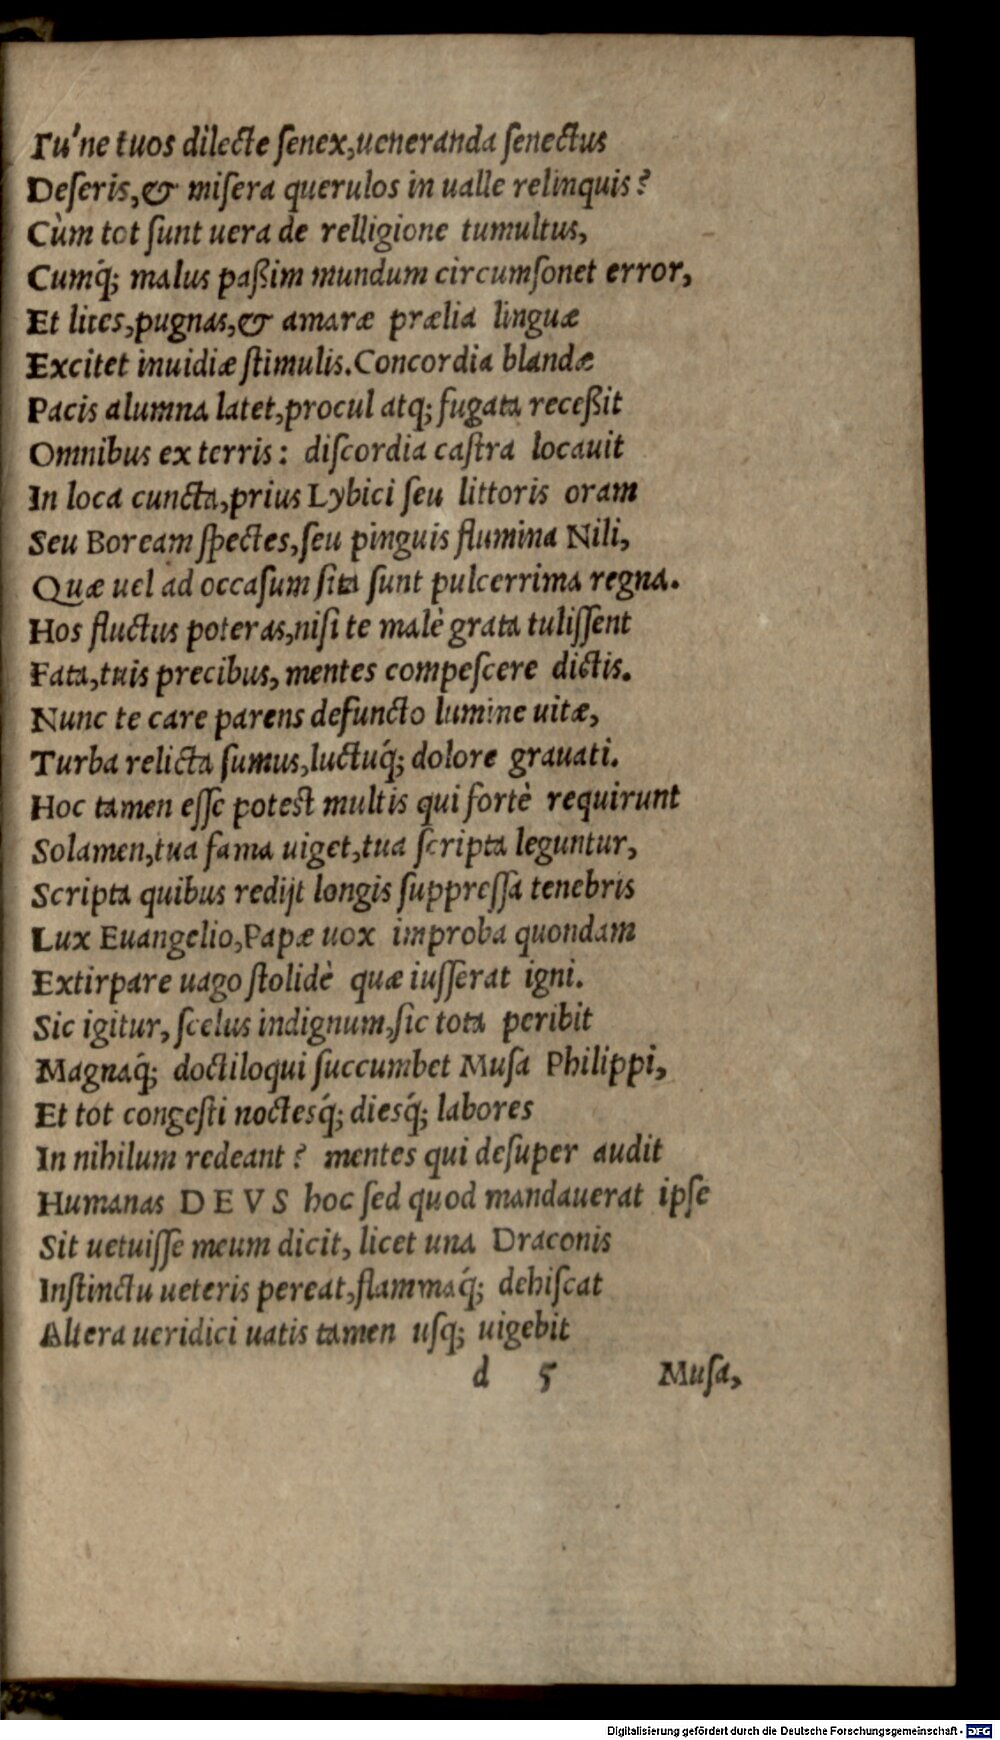 Tu'ne tuos dilecte ſenex,ueneranda ſenectus
Deſeris,& miſera querulos in ualle relinquis?
Cùm tot ſunt uera de relligione tumultus,
Cumq́; malus paßim mundum circumſonet error,
Et lites,pugnas,& amaræ prælia linguæ
Excitet inuidiæ ſtimulis.Concordia blandæ
Pacis alumna latet,procul atq; fugata receßit
Omnibus ex terris: diſcordia caſtra locauit
In loca cuncta,prius Lybici ſeu littoris oram
Seu Boream ſpectes,ſeu pinguis flumina Nili,
Quæ uel ad occaſum ſita ſunt pulcerrima regna.
Hos fluctus poteras,niſi te malè grata tuliſſent
Fata,tuis precibus, mentes compeſcere dictis.
Nunc te care parens defuncto lumine uitæ,
Turba relicta ſumus,luctuq́; dolore grauati.
Hoc tamen eſſe poteſt multis qui fortè requirunt
Solamen,tua fama uiget,tua ſcripta leguntur,
Scripta quibus redijt longis ſuppreſſa tenebris
Lux Euangelio,Papæ uox improba quondam
Extirpare uago ſtolidè quæ iuſſerat igni.
Sic igitur, ſcelus indignum,ſic tota peribit
Magnaq́; doctiloqui ſuccumbet Muſa Philippi,
Et tot congeſti noctesq́; diesq́; labores
In nihilum redeant? mentes qui deſuper audit
Humanas DEVS hoc ſed quod mandauerat ipſe
Sit uetuiſſe meum dicit, licet una Draconis
Inſtinctu ueteris pereat,flammaq́; dehiſcat
Altera ueridici uatis tamen uſq; uigebit
d 5 Muſa,
Digitalisierung gefördert durch die Deutsche Forschungsgemeinschaft - DFG